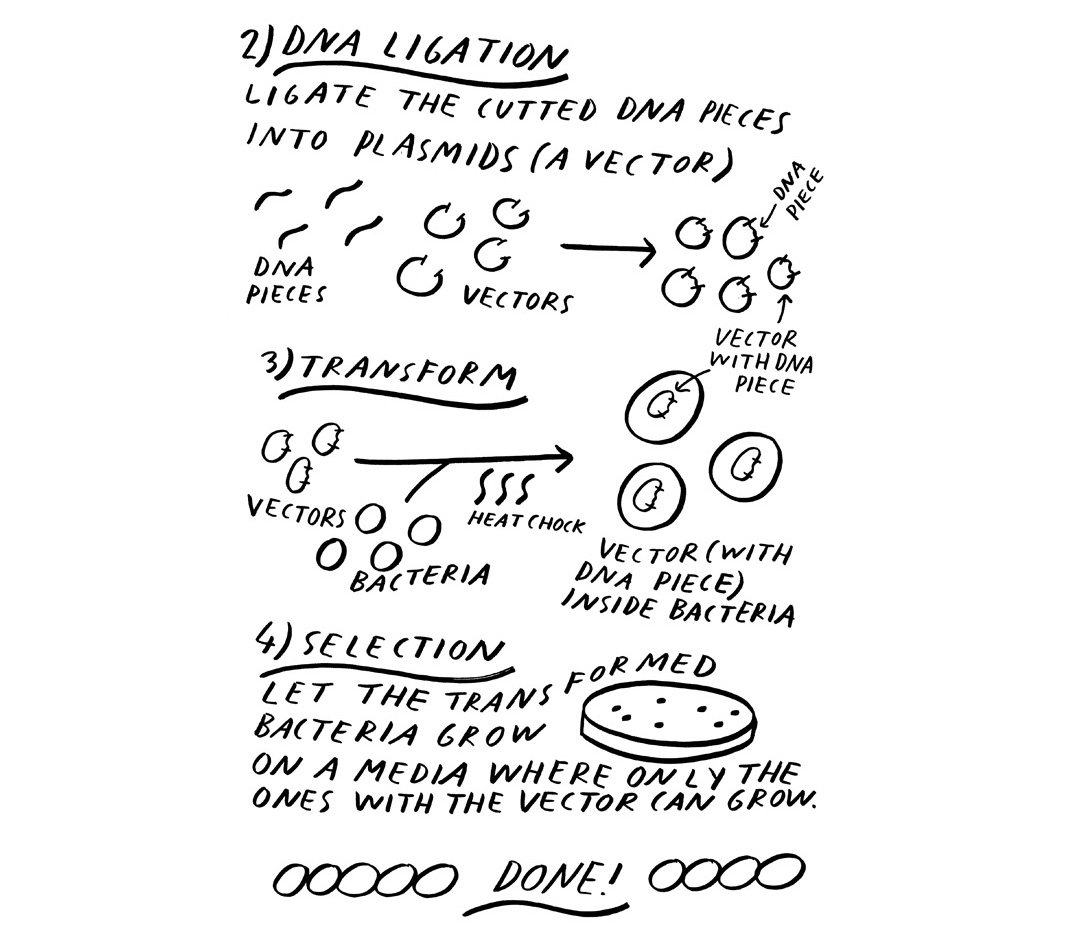 2) DNA LIGATION
LIGATE THE CUTTED DNA PIECES
INTO PLASMIDS (A VECTOR)
DNA
PIECE
DNA
PIECES
VECTORS
VECTOR
WITH DNA
PIECE
3) TRANSFORM
VECTORS
HEAT CHOCK
BACTERIA
VECTOR (WITH
DNA PIECE)
INSIDE BACTERIA
4) SELECTION
LET THE TRANSFORMED
BACTERIA GROW
ON A MEDIA WHERE ONLY THE
ONES WITH THE VECTOR CAN GROW.
DONE!